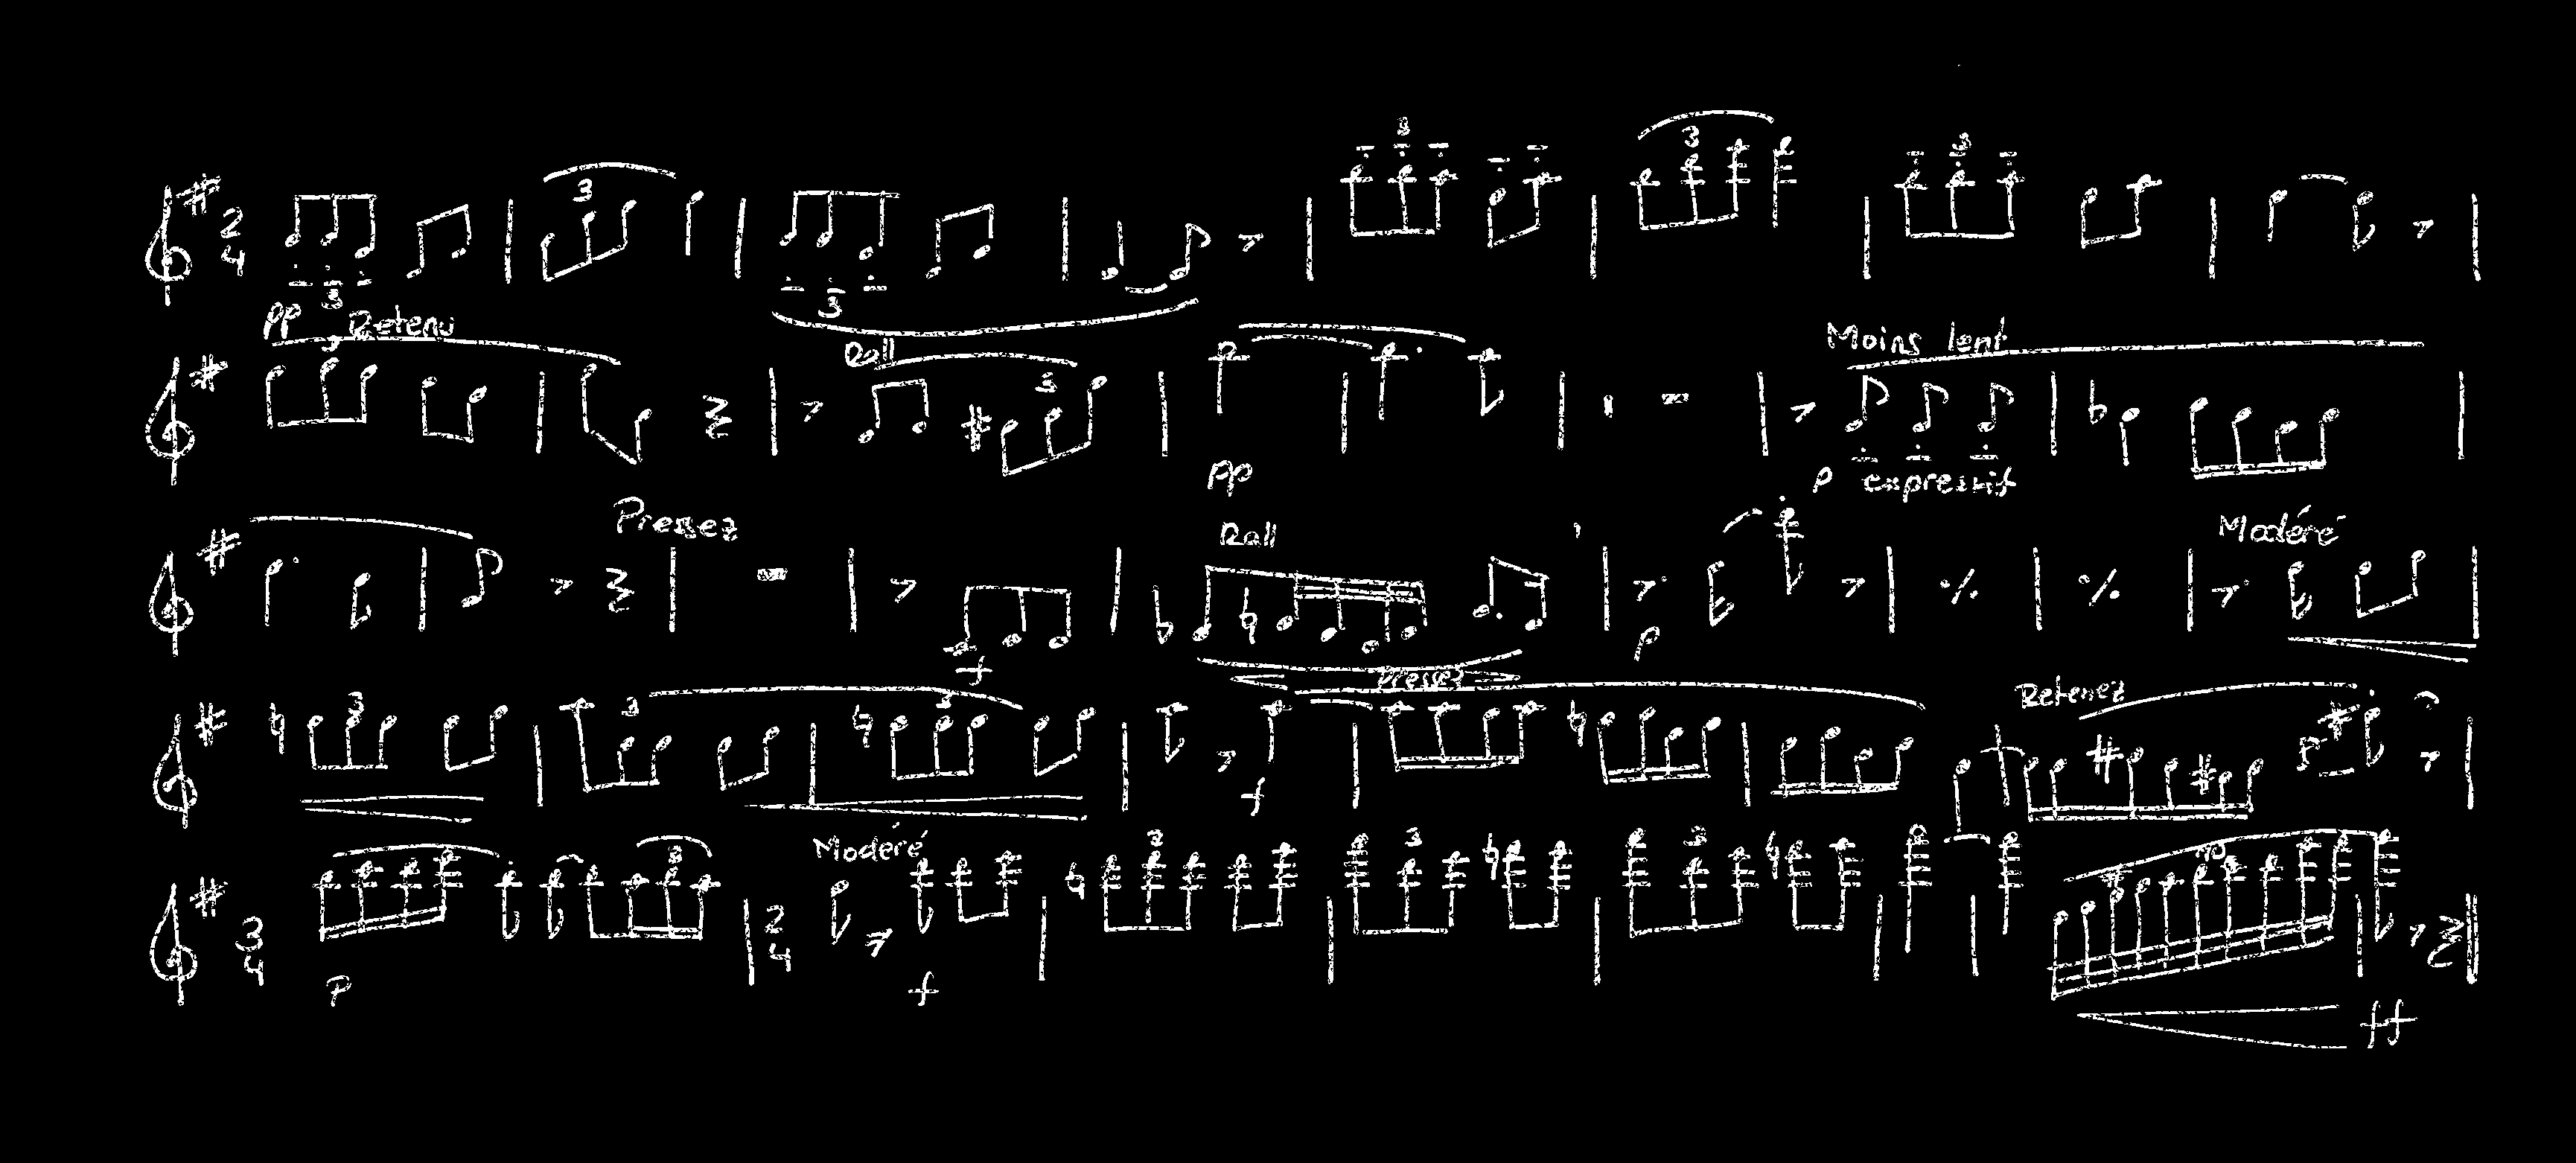 2 4 3 3 3 3 3
pp 3 Retenu 3 Rall 3 Moins lent
pp p expressif
Pressez Rall Modéré
f p
3 3 3 pressez Retenez
f
3 4 3 Modéré 2 4 3 3 3 10
p f ff